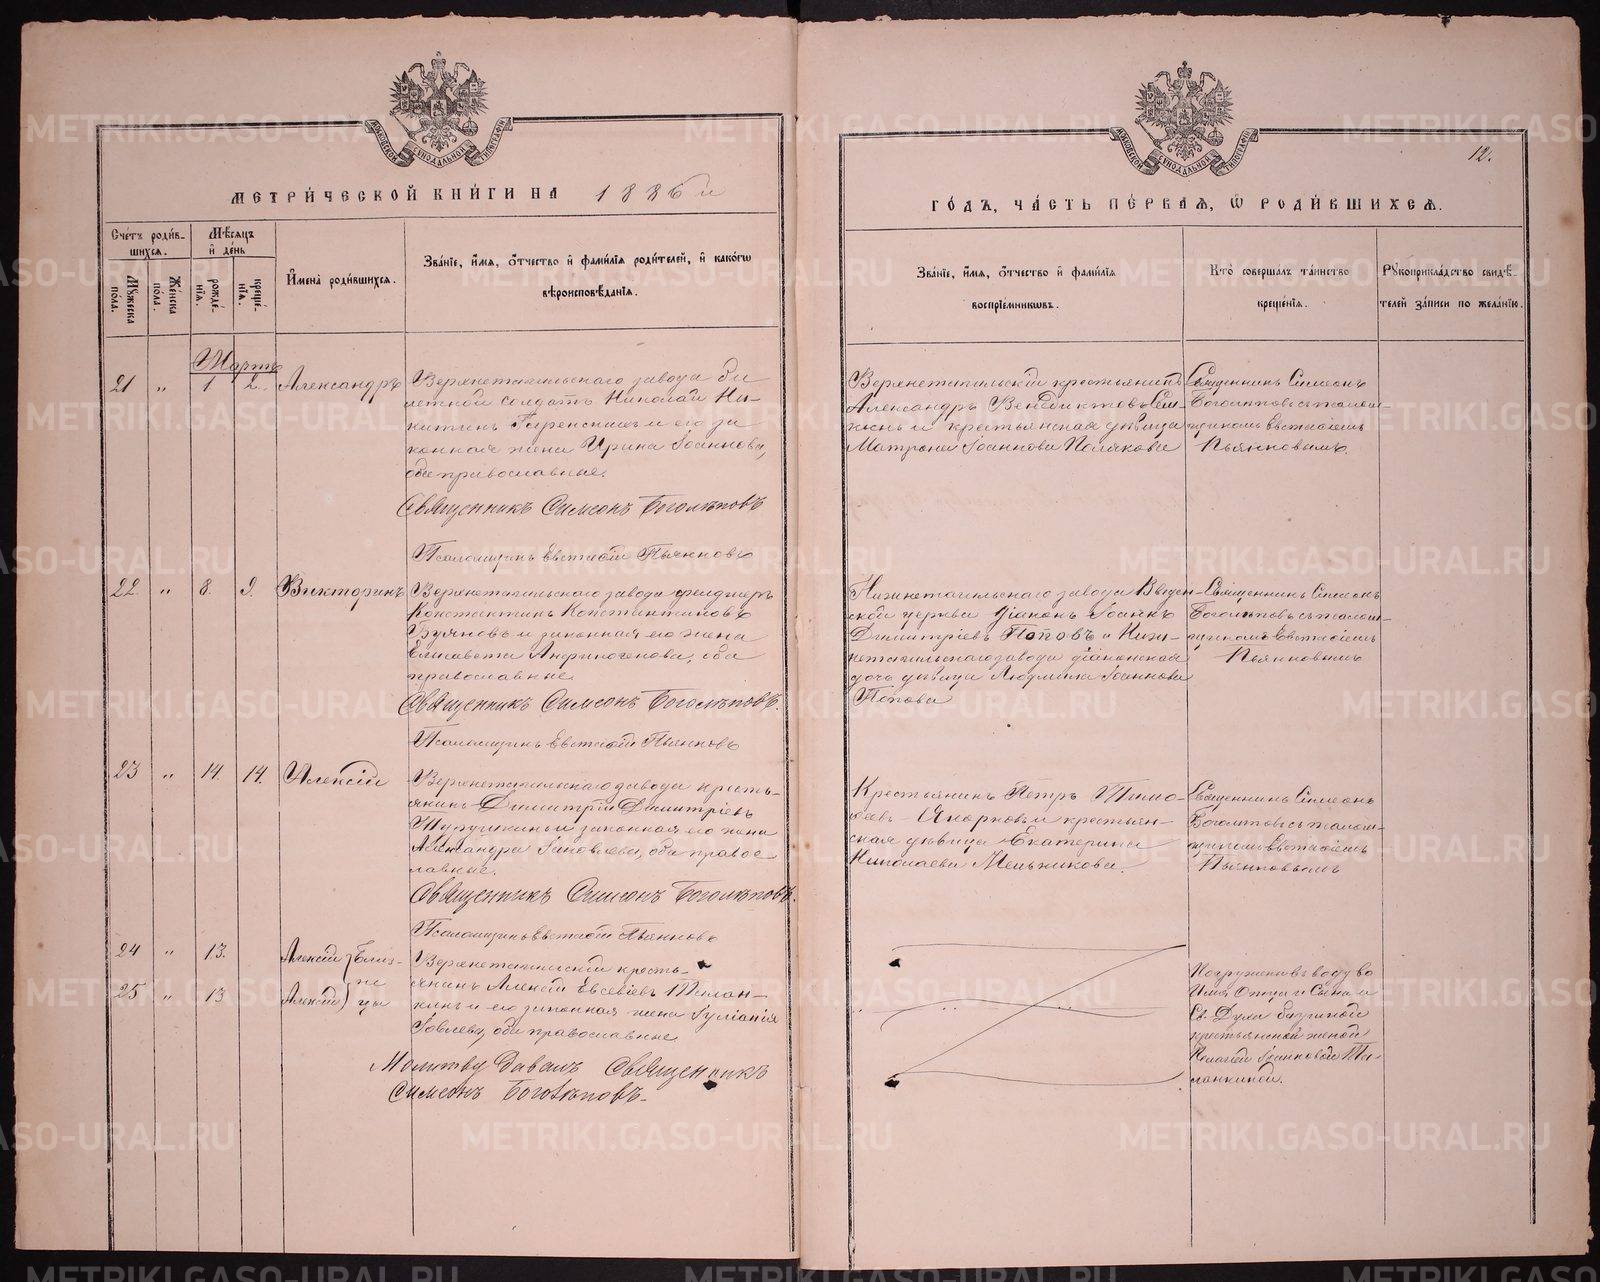 МОСКОВСКОЙ СѴНОДАЛЬНОЙ ТИПОГРАФІИ
МЕТРИ́ЧЕСКОЙ КНИ́ГИ НА 1886 й
Сче́тъ роди́в-
шихсѧ.
Мѣ́сѧцъ
и҆ де́нь
Мꙋ́жеска по́ла.
Же́нска по́ла.
рожде́-нїѧ.
креще́-нїѧ.
И҆мена̀ роди́вшихсѧ.
Зва́нїе, и҆́мѧ, ѻ҆́тчество и҆ фами́лїѧ роди́телей, и҆ како́гѡ
вѣроисповѣ́данїѧ.
Мартъ
21 " 1 2. Александръ
Верхнетагильскаго завода би
летной солдатъ Николай Ни-
китинъ и его за
конная жена Ирина Іоаннова,
оба православные.
Священникъ Симеонъ Боголѣповъ
Псаломщикъ Евстафій Пьянковъ
22 " 8. 9. Викторинъ
Верхнетагильскаго завода фельдшеръ
Константинъ Константиновъ
Буяновъ и законная его жена
Елисавета Андриногенова, оба
православные.
Священникъ Симеонъ Боголѣповъ.
Псаломщикъ Евстафій Пьянковъ
23 " 14. 14. Алексій
Верхнетагильскаго завода кресть-
янинъ Димитрій Димитріевъ
и законная его жена
Александра Іаковлева, оба право-
славные.
Священникъ Симеонъ Боголѣповъ.
Псаломщикъ Евстафій Пьянковъ
24 " 13. Алексій } Близ-
не
25 " 13 Алексій } цы
Верхнетагильскій кресть-
янинъ Алексій Евсевіевъ Тилан-
кинъ и его законная жена Іуліанія
Іовлева, оба православные.
Молитву давалъ Священникъ
Симеонъ Боголѣповъ.
МОСКОВСКОЙ СѴНОДАЛЬНОЙ ТИПОГРАФІИ
12.
ГО́ДЪ, ЧА́СТЬ ПЕ́РВАѦ, Ѡ РОДИ́ВШИХСѦ.
Зва́нїе, и҆́мѧ, ѻ҆́тчество и҆ фами́лїѧ
воспрїе́мникѡвъ.
Кто̀ соверша́лъ та́инство
креще́нїѧ.
Рꙋкоприкла́дство свидѣ́-
телей за́писи по жела́нїю.
Верхнетагильскій крестьянинъ
Александръ Венедиктовъ
и крестьянская дѣвица
Матрона Іоаннова Полякова
Священникъ Симеонъ
Боголѣповъ съ псалом-
щикомъ Евстафіемъ
Пьянковымъ.
Нижнетагильскаго завода Введен-
ской церкви діаконъ Іоаннъ
Димитріевъ Поповъ и Ниж-
нетагильскаго завода діаконская
дочь дѣвица Людмила Іоаннова
Попова
Священникъ Симеонъ
Боголѣповъ съ псалом-
щикомъ Евстафіемъ
Пьянковымъ
Крестьянинъ Петръ Тимо-
ѳеевъ и крестьян-
ская дѣвица Екатерина
Николаева Мельникова.
Священникъ Симеонъ
Боголѣповъ съ псалом-
щикомъ Евстафіемъ
Пьянковымъ
Погружены въ воду во
Имя Отца и Сына и
Св. Духа бабушкой
крестьянской женой
Пелагеей Іоанновой Ти-
ланкиной.
METRIKI.GASO-URAL.RU